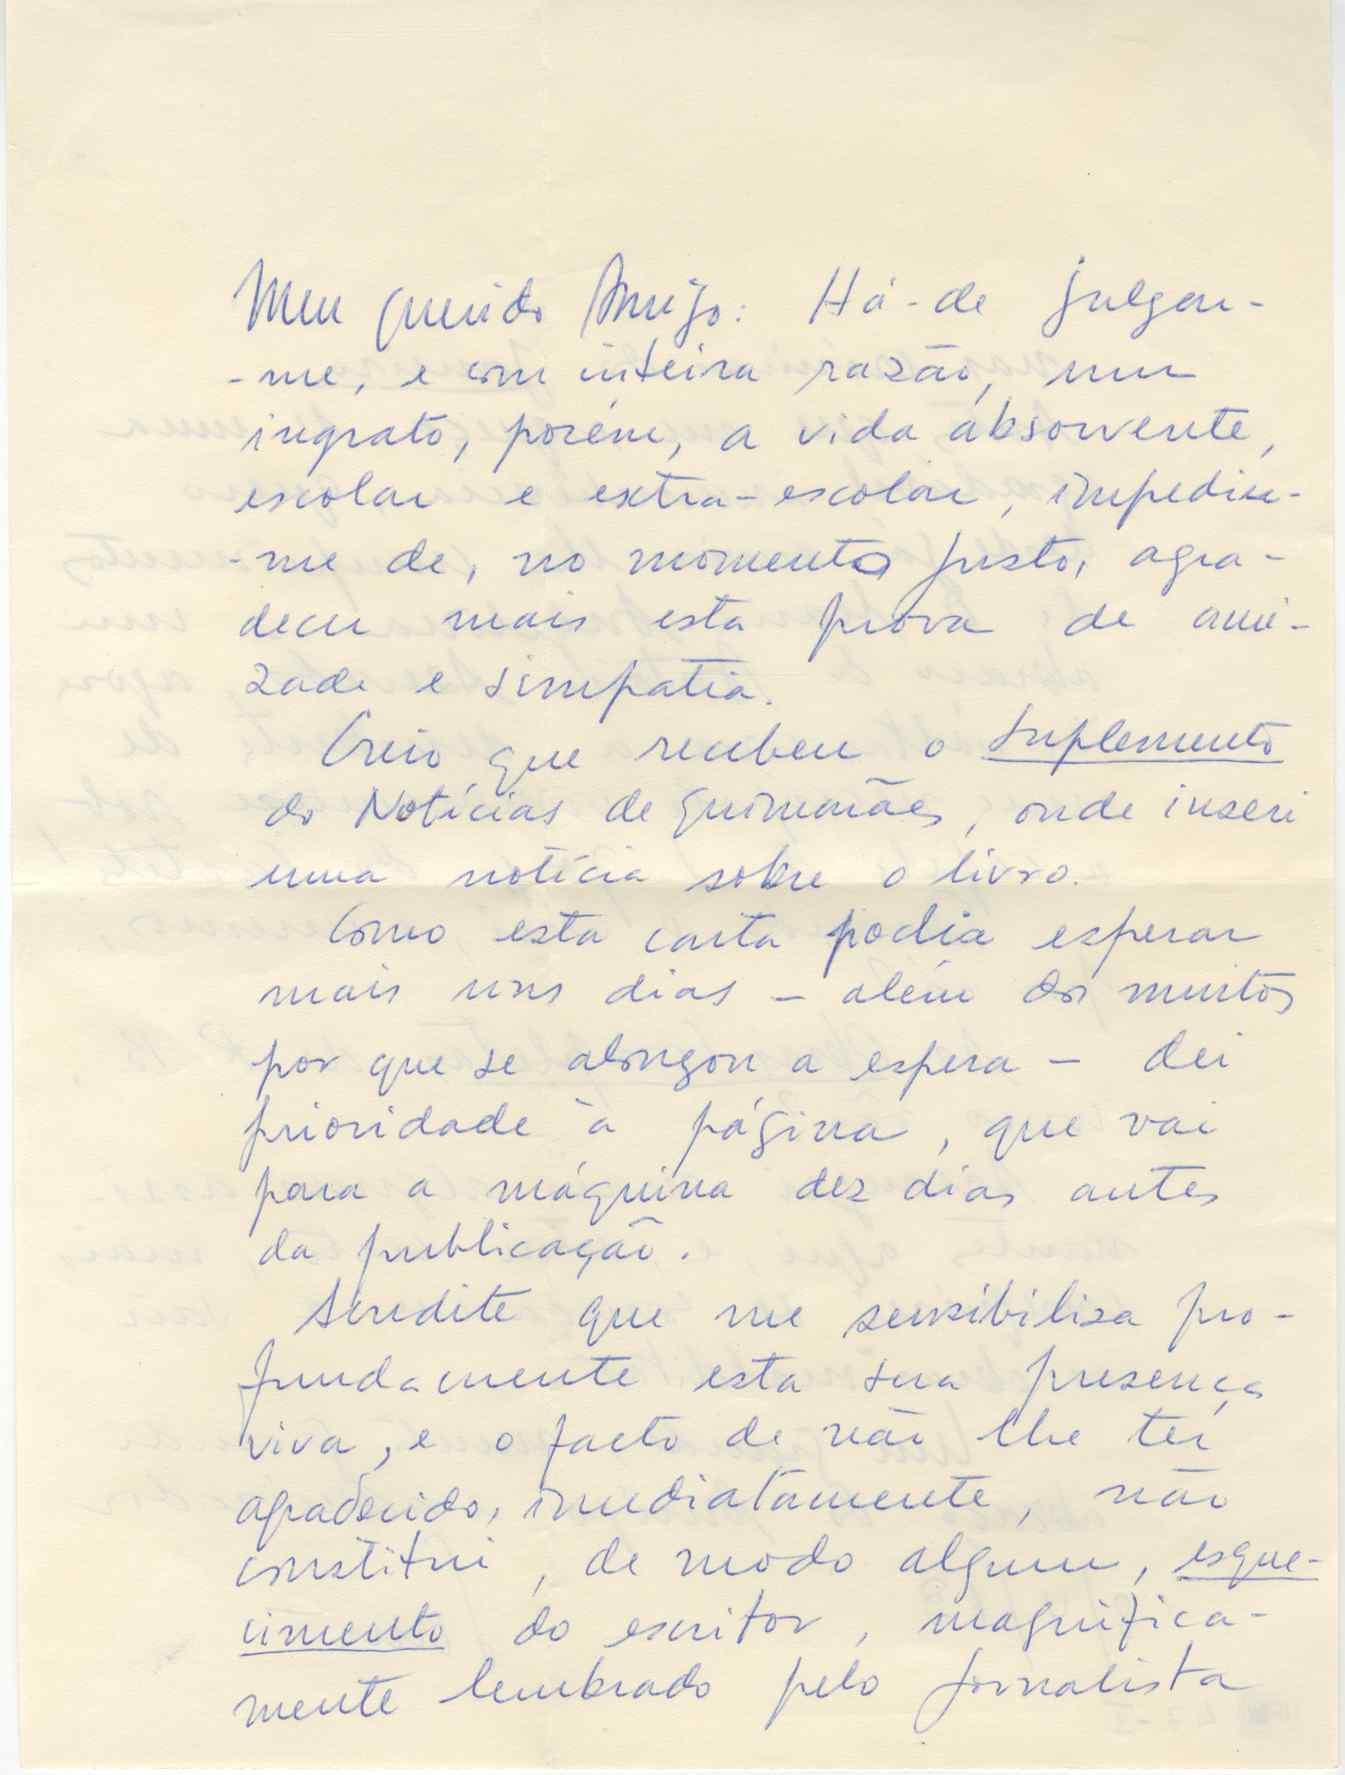 Meu querido Amigo: Há-de julgar-
-me, e com inteira razão, um
ingrato, porém, a vida absorvente,
escolar e extra-escolar, impediu-
-me de, no momento justo, agra-
decer mais esta prova de ami-
zade e simpatia.
Creio que recebeu o Suplemento
do Notícias de Guimarães, onde inseri
uma notícia sobre o livro.
Como esta carta podia esperar
mais uns dias - além dos muitos
por que se alongou a espera - dei
prioridade à página, que vai
para a máquina dez dias antes
da publicação.
Acredite que me sensibiliza pro-
fundamente esta sua presença
viva, e o facto de não lhe ter
agradecido, imediatamente, não
constitui, de modo algum, esque-
cimento do escritor, magnífica-
mente lembrado pelo jornalista